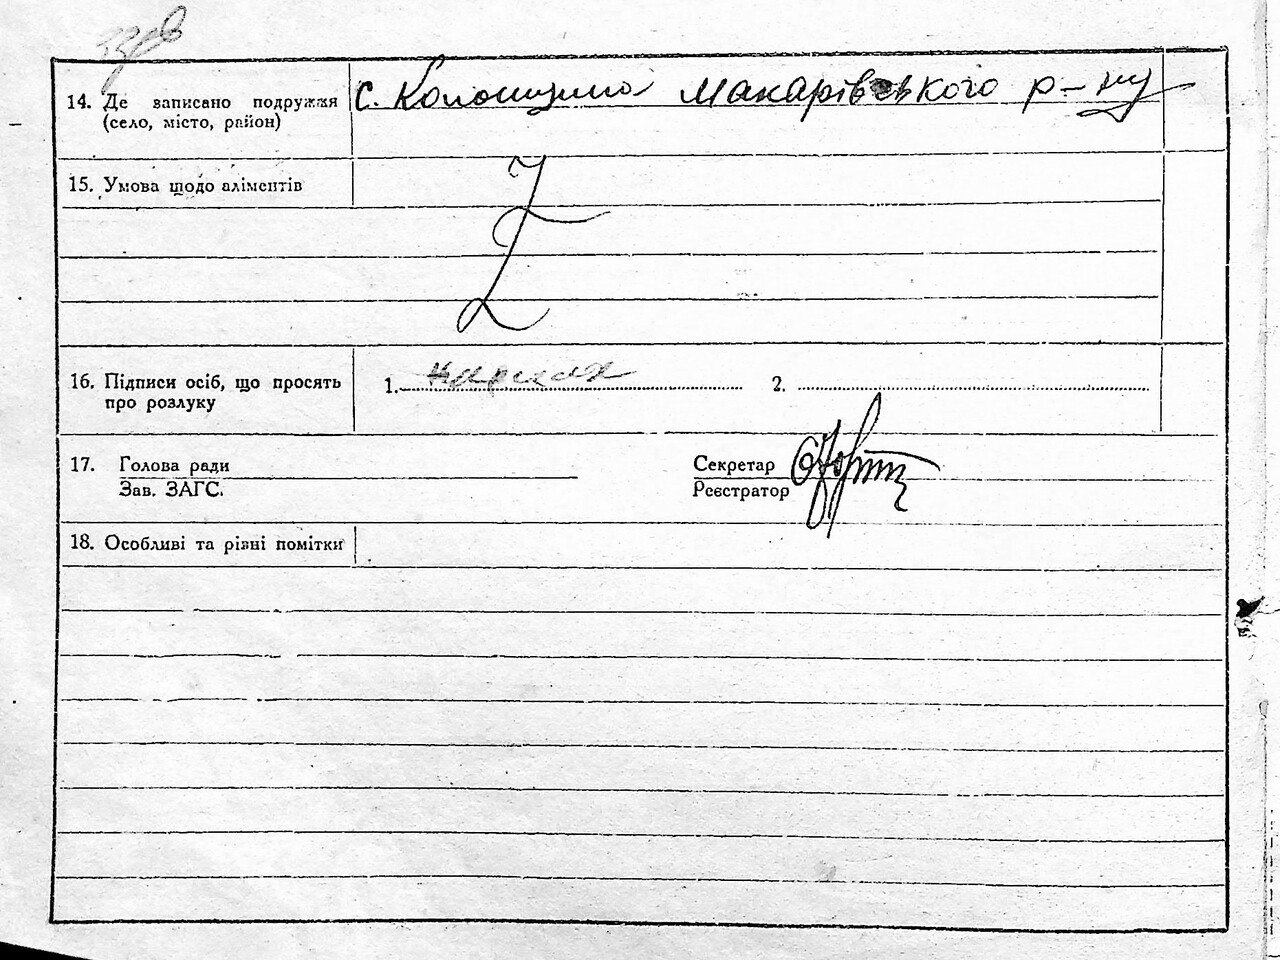 14. Де записано подружжя
(село, місто, район)
с. Колонщино Макарівського р-ну
15. Умова щодо аліментів
16. Підписи осіб, що просять
про розлуку
1. 2.
17. Голова ради
Зав. ЗАГС.
Секретар
Реєстратор
18. Особливі та різні помітки